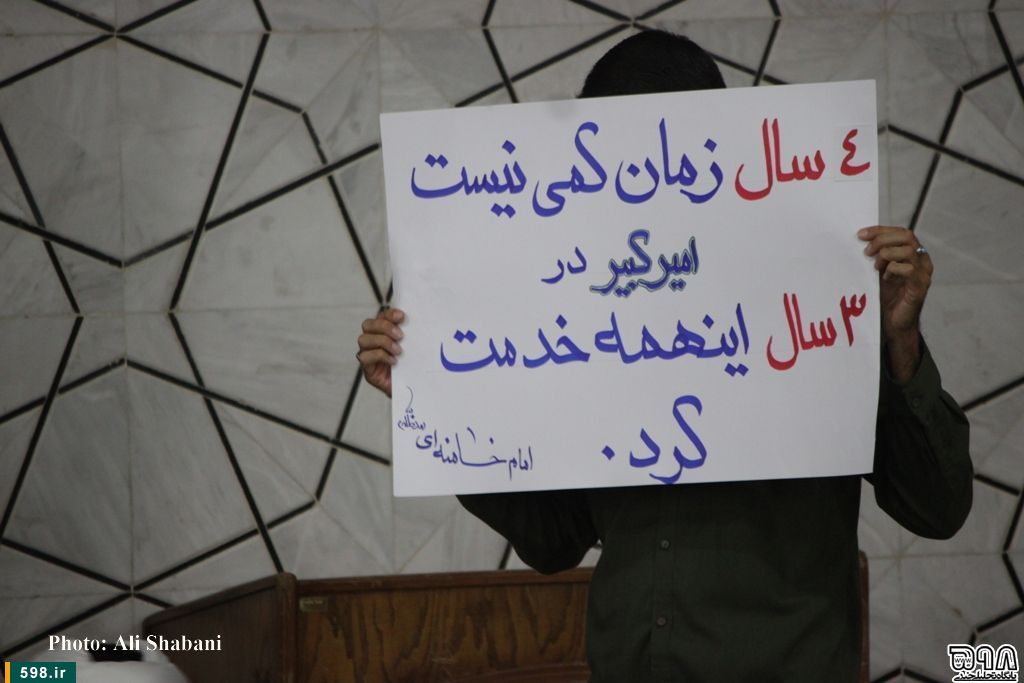 ٤ سال زمان کمی نیست
امیرکبیر در
۳ سال اینهمه خدمت
کرد.
امام خامنه ای مدظله
Photo: Ali Shabani
598.ir
۵۹۸